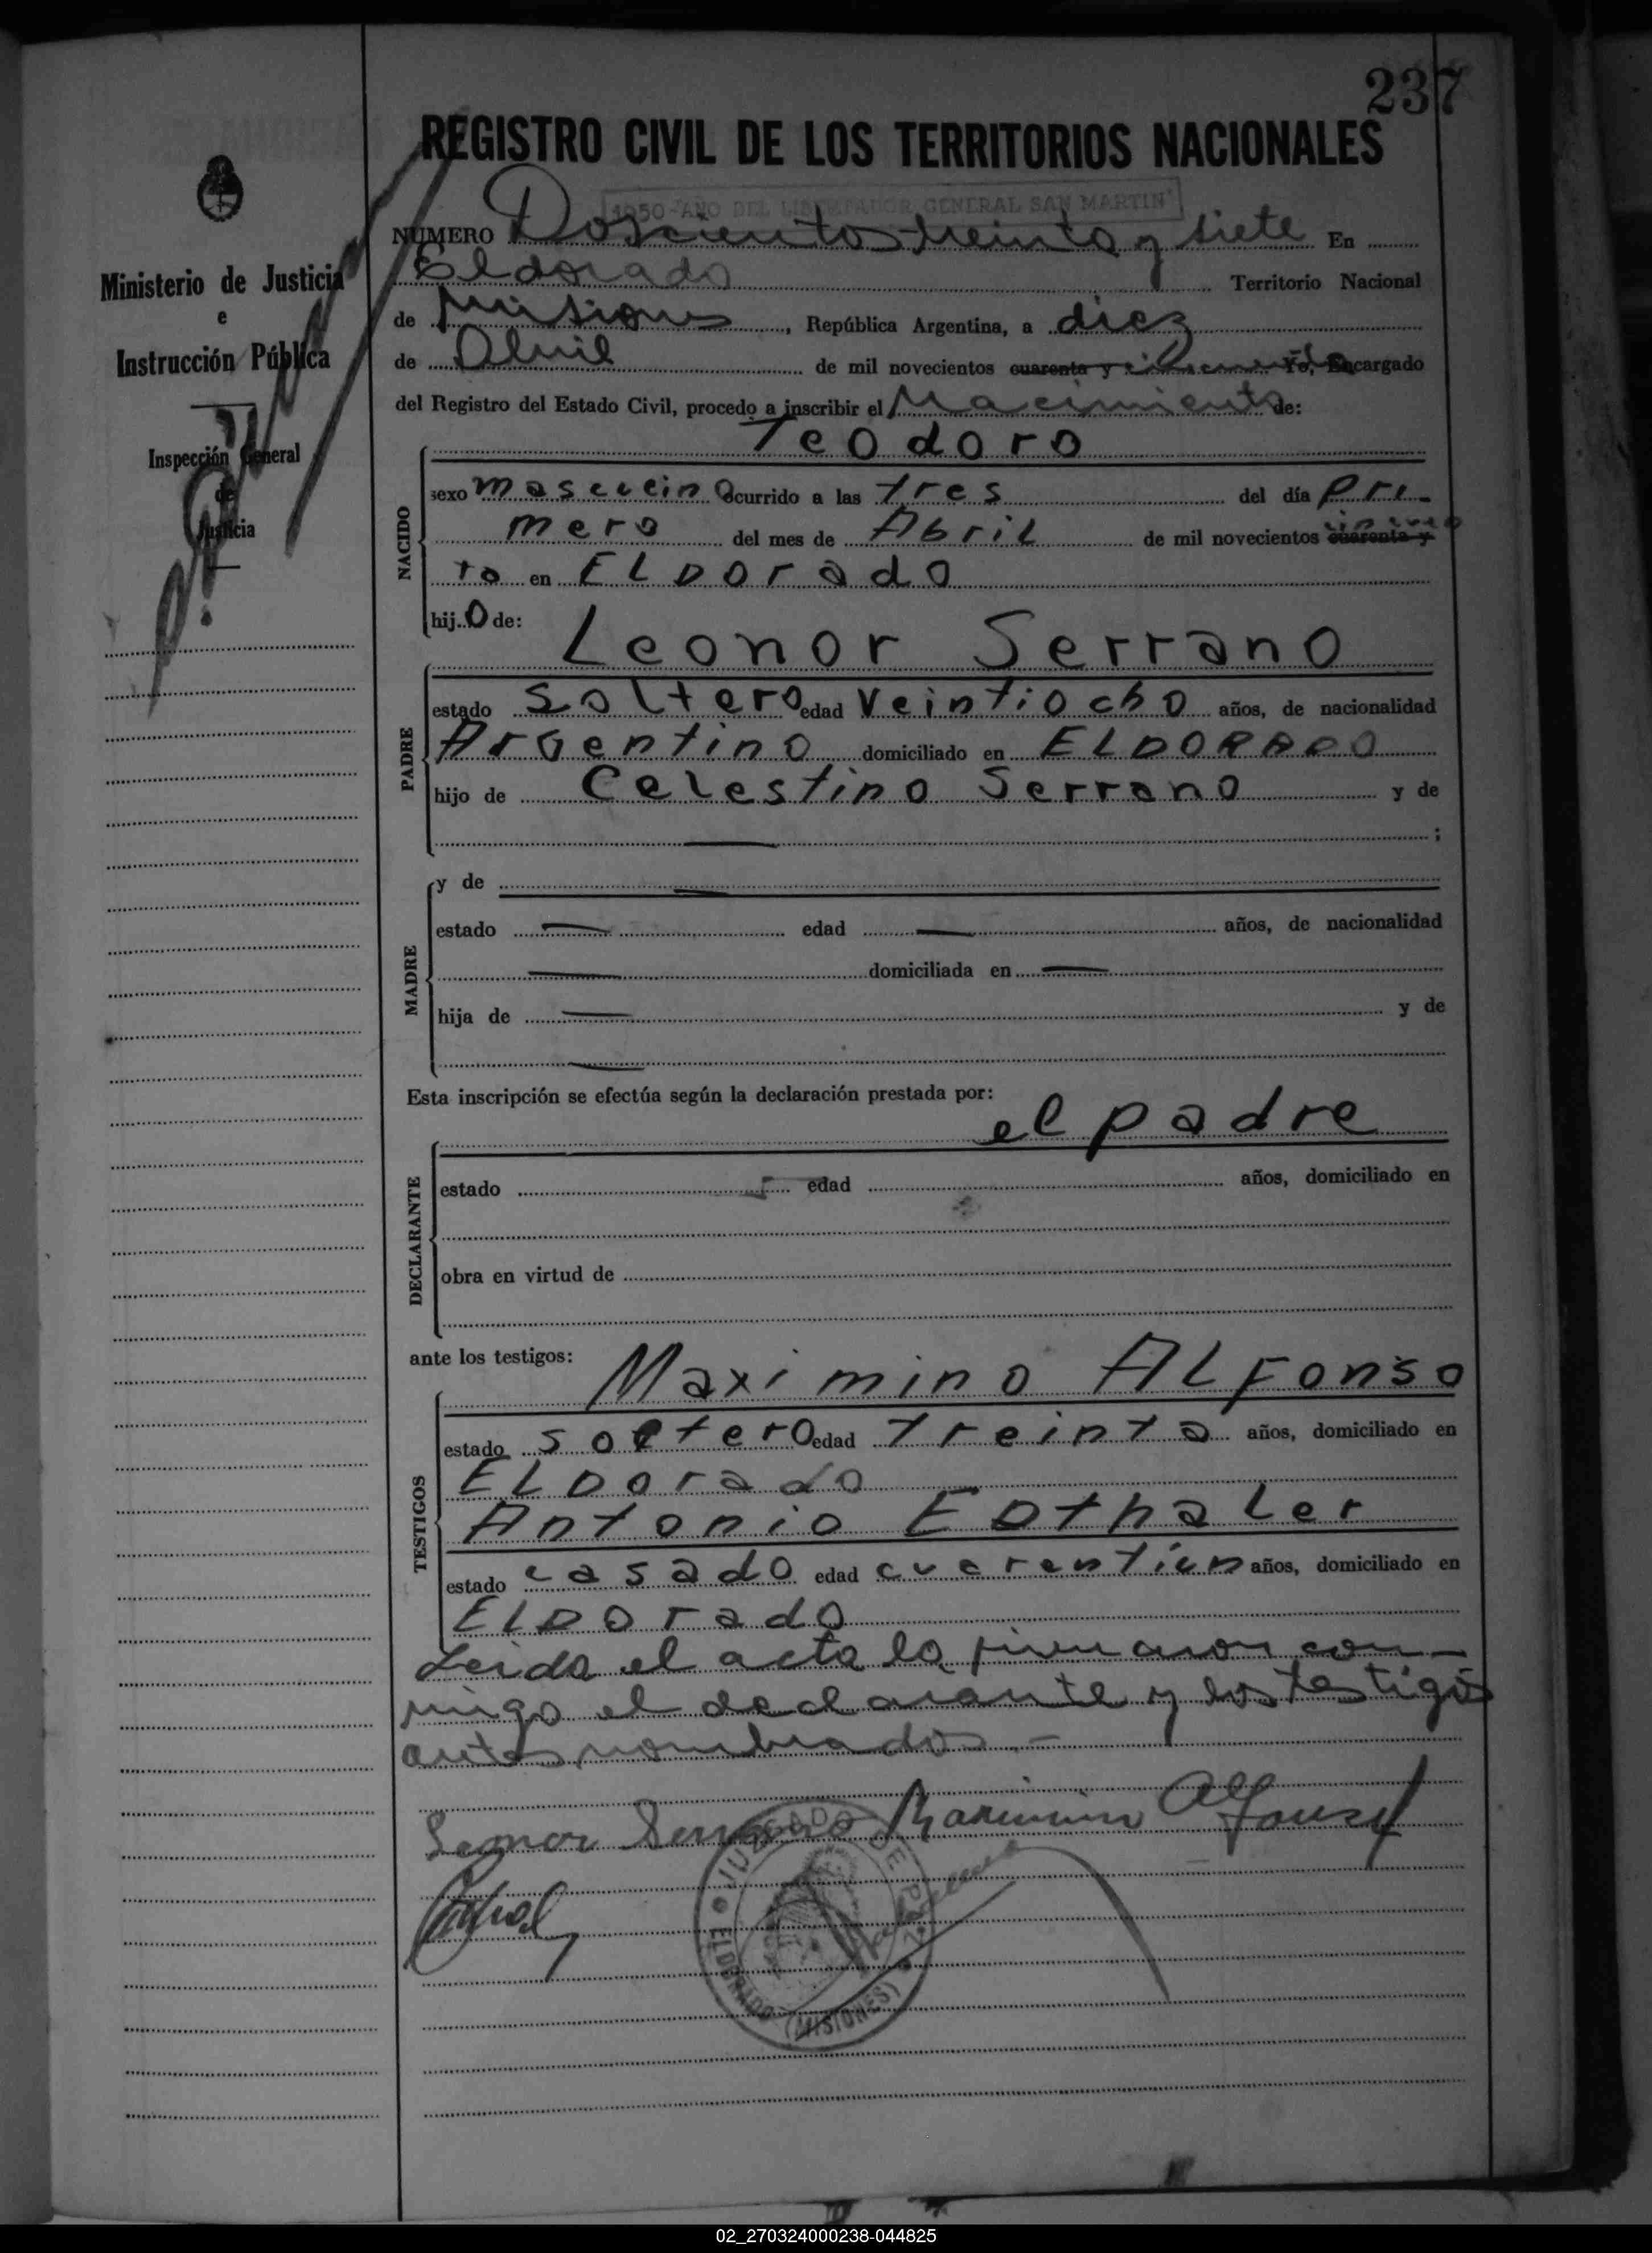 237
REGISTRO CIVIL DE LOS TERRITORIOS NACIONALES
1950-AÑO DEL LIBERTADOR GENERAL SAN MARTIN
Ministerio de Justicia
e
Instrucción Pública
Inspección General
de
Justicia
NUMERO Doscientos treinta y siete En
Eldorado Territorio Nacional
de Misiones, República Argentina, a diez
de Abril de mil novecientos cuarenta y cincuenta Yo, Encargado
del Registro del Estado Civil, procedo a inscribir el Nacimiento de:
Teodoro
NACIDO
sexo masculino Ocurrido a las tres del día pri-
mero del mes de Abril de mil novecientos cuarenta y cincuen
ta en ELDOrado
hijO de:
Leonor Serrano
PADRE
estado soltero edad veintiocho años, de nacionalidad
Argentino domiciliado en ELDORADO
hijo de Celestino Serrano y de
— ;
MADRE
y de —
estado — edad — años, de nacionalidad
— domiciliada en —
hija de — y de
—
Esta inscripción se efectúa según la declaración prestada por:
el padre
DECLARANTE
estado edad años, domiciliado en
obra en virtud de
ante los testigos:
Maximino ALFonso
TESTIGOS
estado soltero edad treinta años, domiciliado en
ELDorado
Antonio EDthaLer
estado casado edad cuarentiún años, domiciliado en
ELDorado
Leida el acta la firmaron con-
migo el declarante y los testigos
antes nombrados.-
Leonor Serrano Maximino Alfonso
JUZGADO DE PAZ
ELDORADO (MISIONES)
02_270324000238-044825